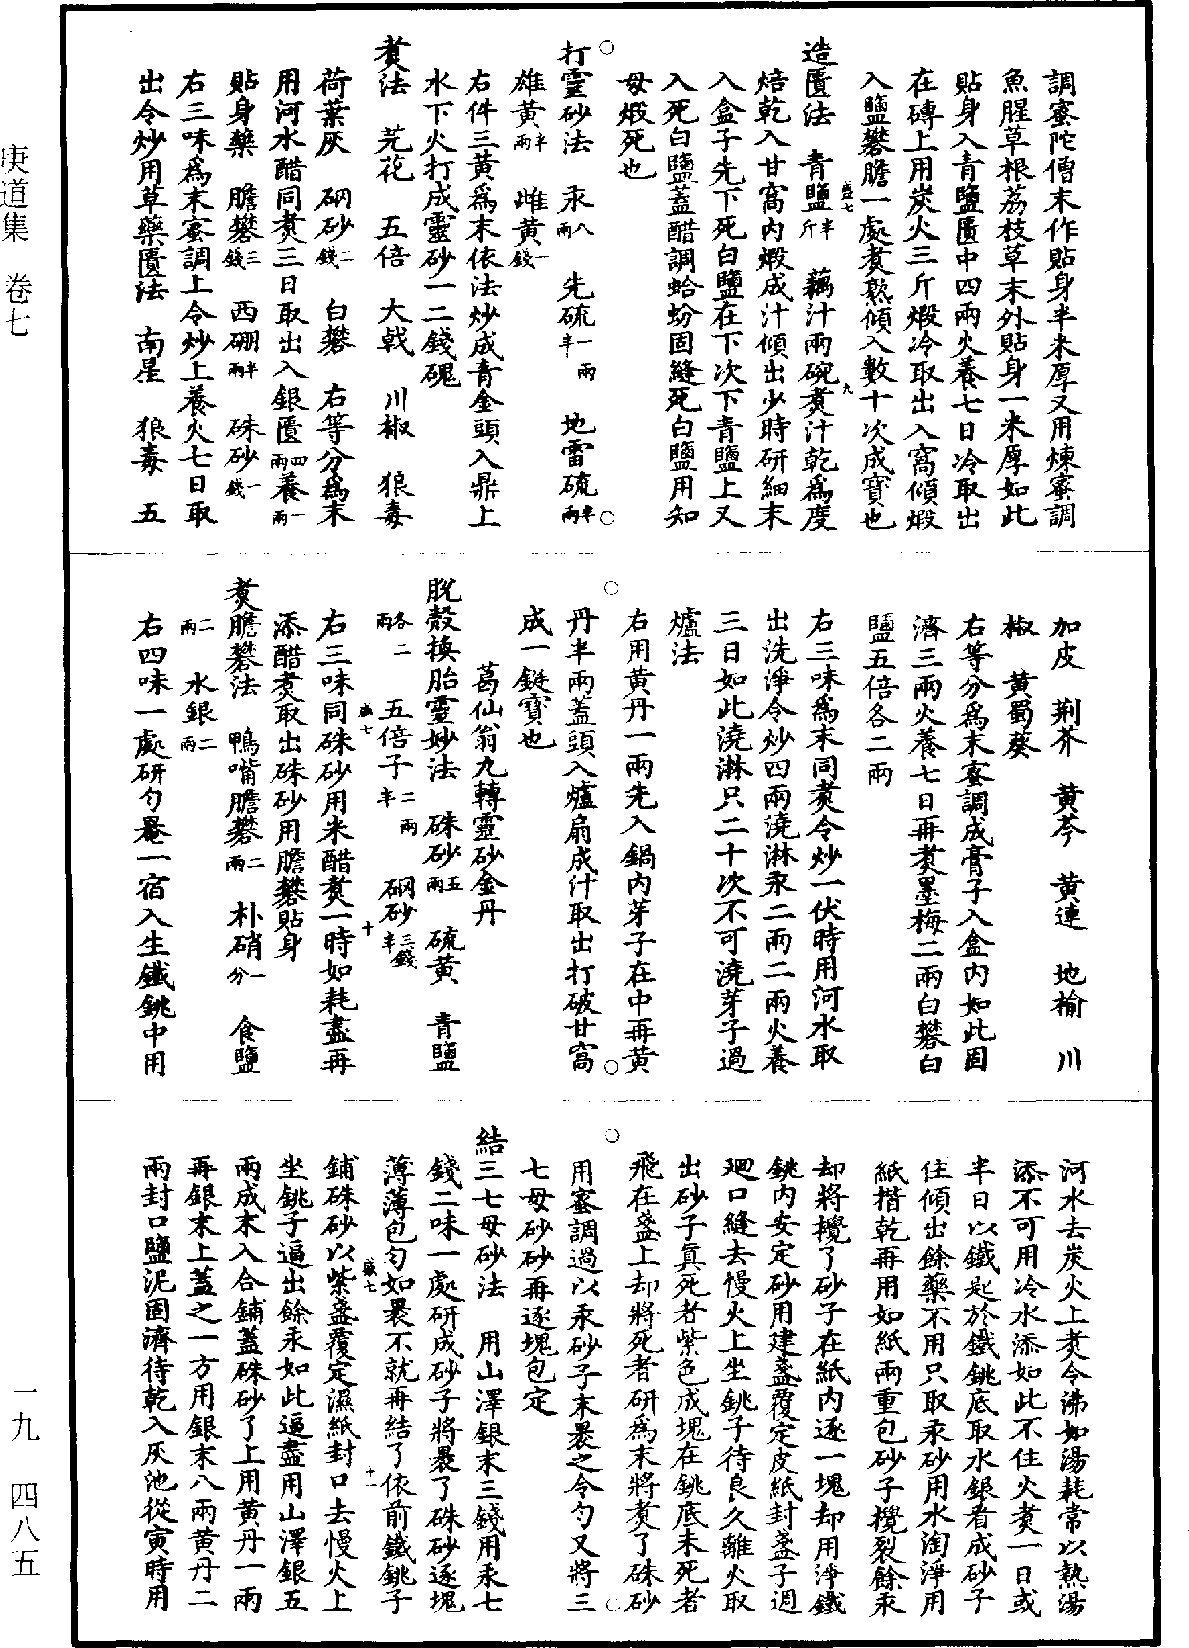 調蜜陀僧末作貼身半米厚又用煉蜜調
魚腥草根荔枝草末外貼身一米厚如此
貼身入青鹽匱中四兩火養七日冷取出
在磚上用炭火三斤煅冷取出入窩傾煅
入鹽礬膽一處煑熟傾入數十次成寶也
造匱法 青鹽半斤 藕汁兩碗煑汁乾爲度
焙乾入甘窩內煅成汁傾出少時研細末
入盒子先下死白鹽在下次下青鹽上又
入死白鹽蓋醋調蛤蚡固縫死白鹽用知
母煅死也
打靈砂法 汞八兩 先硫一兩半 地雷硫半兩
雄黃半兩 雌黃一錢
右件三黃爲末依法炒成青金頭入鼎上
水下火打成靈砂一二錢磈
煑法 芫花 五倍 大戟 川椒 狼毒
荷葉灰 硇砂二錢 白礬 右等分爲末
用河水醋同煑三日取出入銀匱四兩養一兩
貼身藥 膽礬三錢 西硼半兩 硃砂一錢
右三味爲末蜜調上令炒上養火七日取
出令炒用草藥匱法 南星 狼毒 五
加皮 荆芥 黃芩 黃連 地榆 川
椒 黃蜀葵
右等分爲末蜜調成膏子入盒內如此固
濟三兩火養七日再煑墨梅二兩白礬白
鹽五倍各二兩
右三味爲末同煑令炒一伏時用河水取
出洗淨令炒四兩澆淋汞二兩二兩火養
三日如此澆淋只二十次不可澆芽子過
爐法
右用黃丹一兩先入鍋內芽子在中再黃
丹半兩蓋頭入爐扇成汁取出打破甘窩
成一鋌寶也
葛仙翁九轉靈砂金丹
脫殼換胎靈妙法 硃砂五兩 硫黃 青鹽
各二兩 五倍子二兩半 硇砂三錢半
右三味同硃砂用米醋煑一時如耗盡再
添醋煑取出硃砂用膽礬貼身
煑膽礬法 鴨嘴膽礬二兩 朴硝一分 食鹽
二兩 水銀二兩
右四味一處研勻罨一宿入生鐵銚中用
河水去炭火上煑令沸如湯耗常以熱湯
添不可用冷水添如此不住火煑一日或
半日以鐵匙於鐵銚底取水銀看成砂子
住傾出餘藥不用只取汞砂用水淘淨用
紙揩乾再用如紙兩重包砂子攪裂餘汞
却將攪了砂子在紙內逐一塊却用淨鐵
銚內安定砂用建盞覆定皮紙封盞子週
廻口縫去慢火上坐銚子待良久離火取
出砂子真死者紫色成塊在銚底未死者
飛在盞上却將死者研爲末將煑了硃砂
用蜜調過以汞砂子末褁之令勻又將三
七母砂砂再逐塊包定
結三七母砂法 用山澤銀末三錢用汞七
錢二味一處研成砂子將褁了硃砂逐塊
薄薄包勻如褁不就再結了依前鐵銚子
鋪硃砂以紫盞覆定濕紙封口去慢火上
坐銚子逼出餘汞如此逼盡用山澤銀五
兩成末入合鋪蓋硃砂了上用黃丹一兩
再銀末上蓋之一方用銀末八兩黃丹二
兩封口鹽泥固濟待乾入灰池從寅時用
庚道集 卷七
一九 四八五